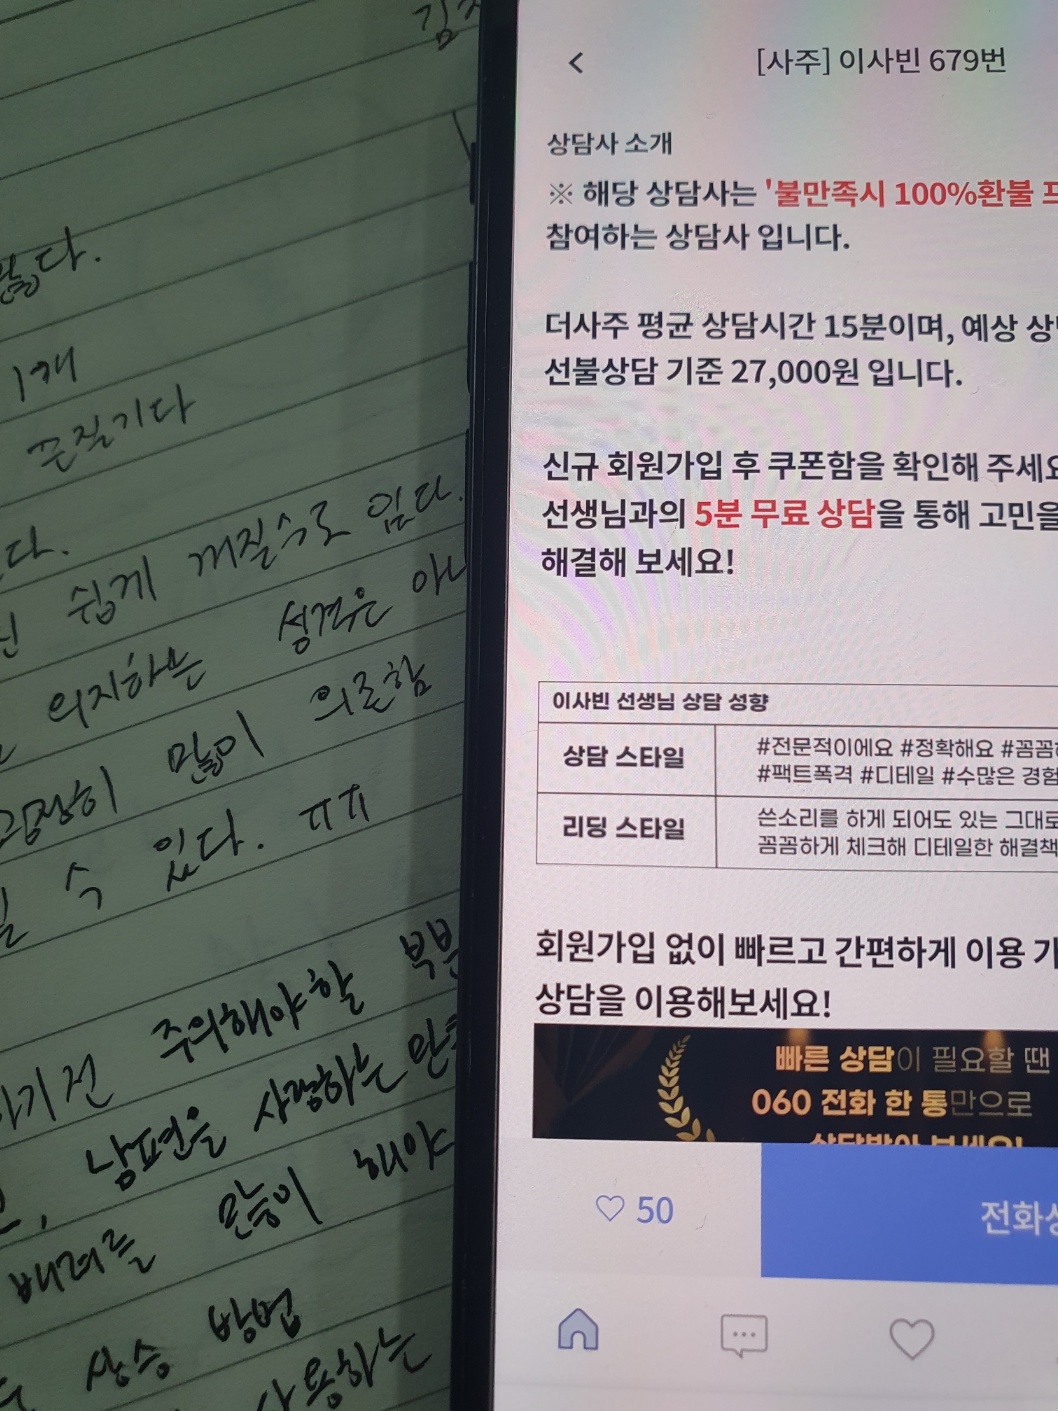 김
많다.
1개
끈질기다
다.
쉽게 꺼질수도 있다.
의지하는 성격은 아니
굉장히 많이 의존함
수 있다. ㅠㅠ
하기전 주의해야할 부분
남편을 사랑하는 만큼
배려를 많이 해야
상승 방법
사용하는
[사주] 이사빈 679번
상담사 소개
※ 해당 상담사는 '불만족시 100%환불 프
참여하는 상담사 입니다.
더사주 평균 상담시간 15분이며, 예상 상담
선불상담 기준 27,000원 입니다.
신규 회원가입 후 쿠폰함을 확인해 주세요
선생님과의 5분 무료 상담을 통해 고민을
해결해 보세요!
이사빈 선생님 상담 성향
상담 스타일
#전문적이에요 #정확해요 #꼼꼼해
#팩트폭격 #디테일 #수많은 경험
리딩 스타일
쓴소리를 하게 되어도 있는 그대로
꼼꼼하게 체크해 디테일한 해결책
회원가입 없이 빠르고 간편하게 이용 가
상담을 이용해보세요!
빠른 상담이 필요할 땐
060 전화 한 통만으로
상담받아 보세요!
50
전화상